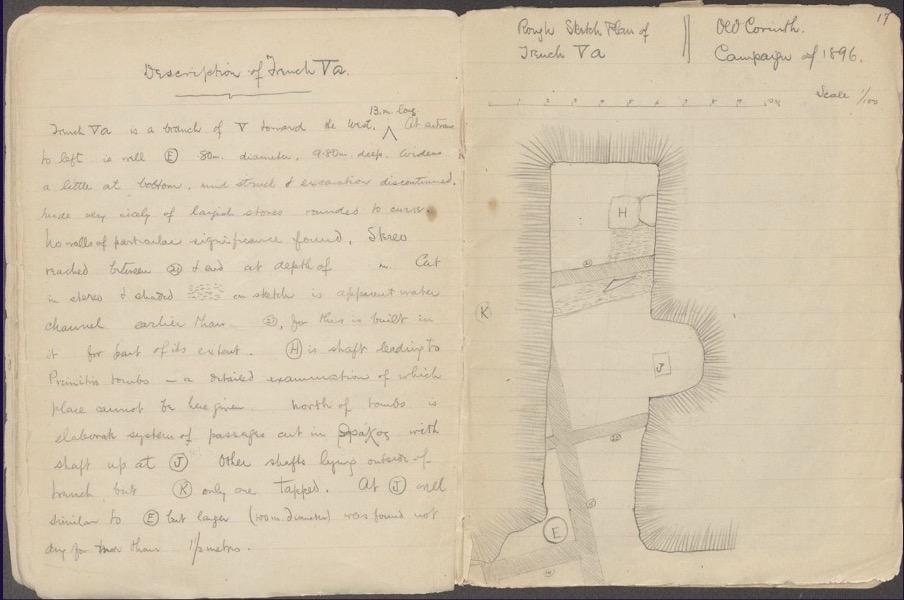 Description of Trench Va.
13 m. long
Trench Va is a branch of V toward the West. ^ At entrance
to left is well (E) .80m. diameter, 9.80m. deep. Widens
a little at bottom, and struck & excavation discontinued.
Made very nicely of largish stones rounded to curve.
No walls of particular significance found. Stereo
reached between & end at depth of m. Cut
in stereo & shaded on sketch is apparent water
channel earlier than , for this is built in
it for part of its extent. (H) is shaft leading to
Primitive tombs – a detailed examination of which
place cannot be here given. North of tombs is
elaborate system of passages cut in with
shaft up at (J) Other shafts lying outside of
trench, but (K) only one tapped. At (J) well
similar to (E) but larger (1.00 m. diameter) was found not
dug for more than 1 1/2 metres.
17
Rough Sketch Plan of
Trench Va
Old Corinth.
Campaign of 1896.
Scale 1/100
H
K
J
E